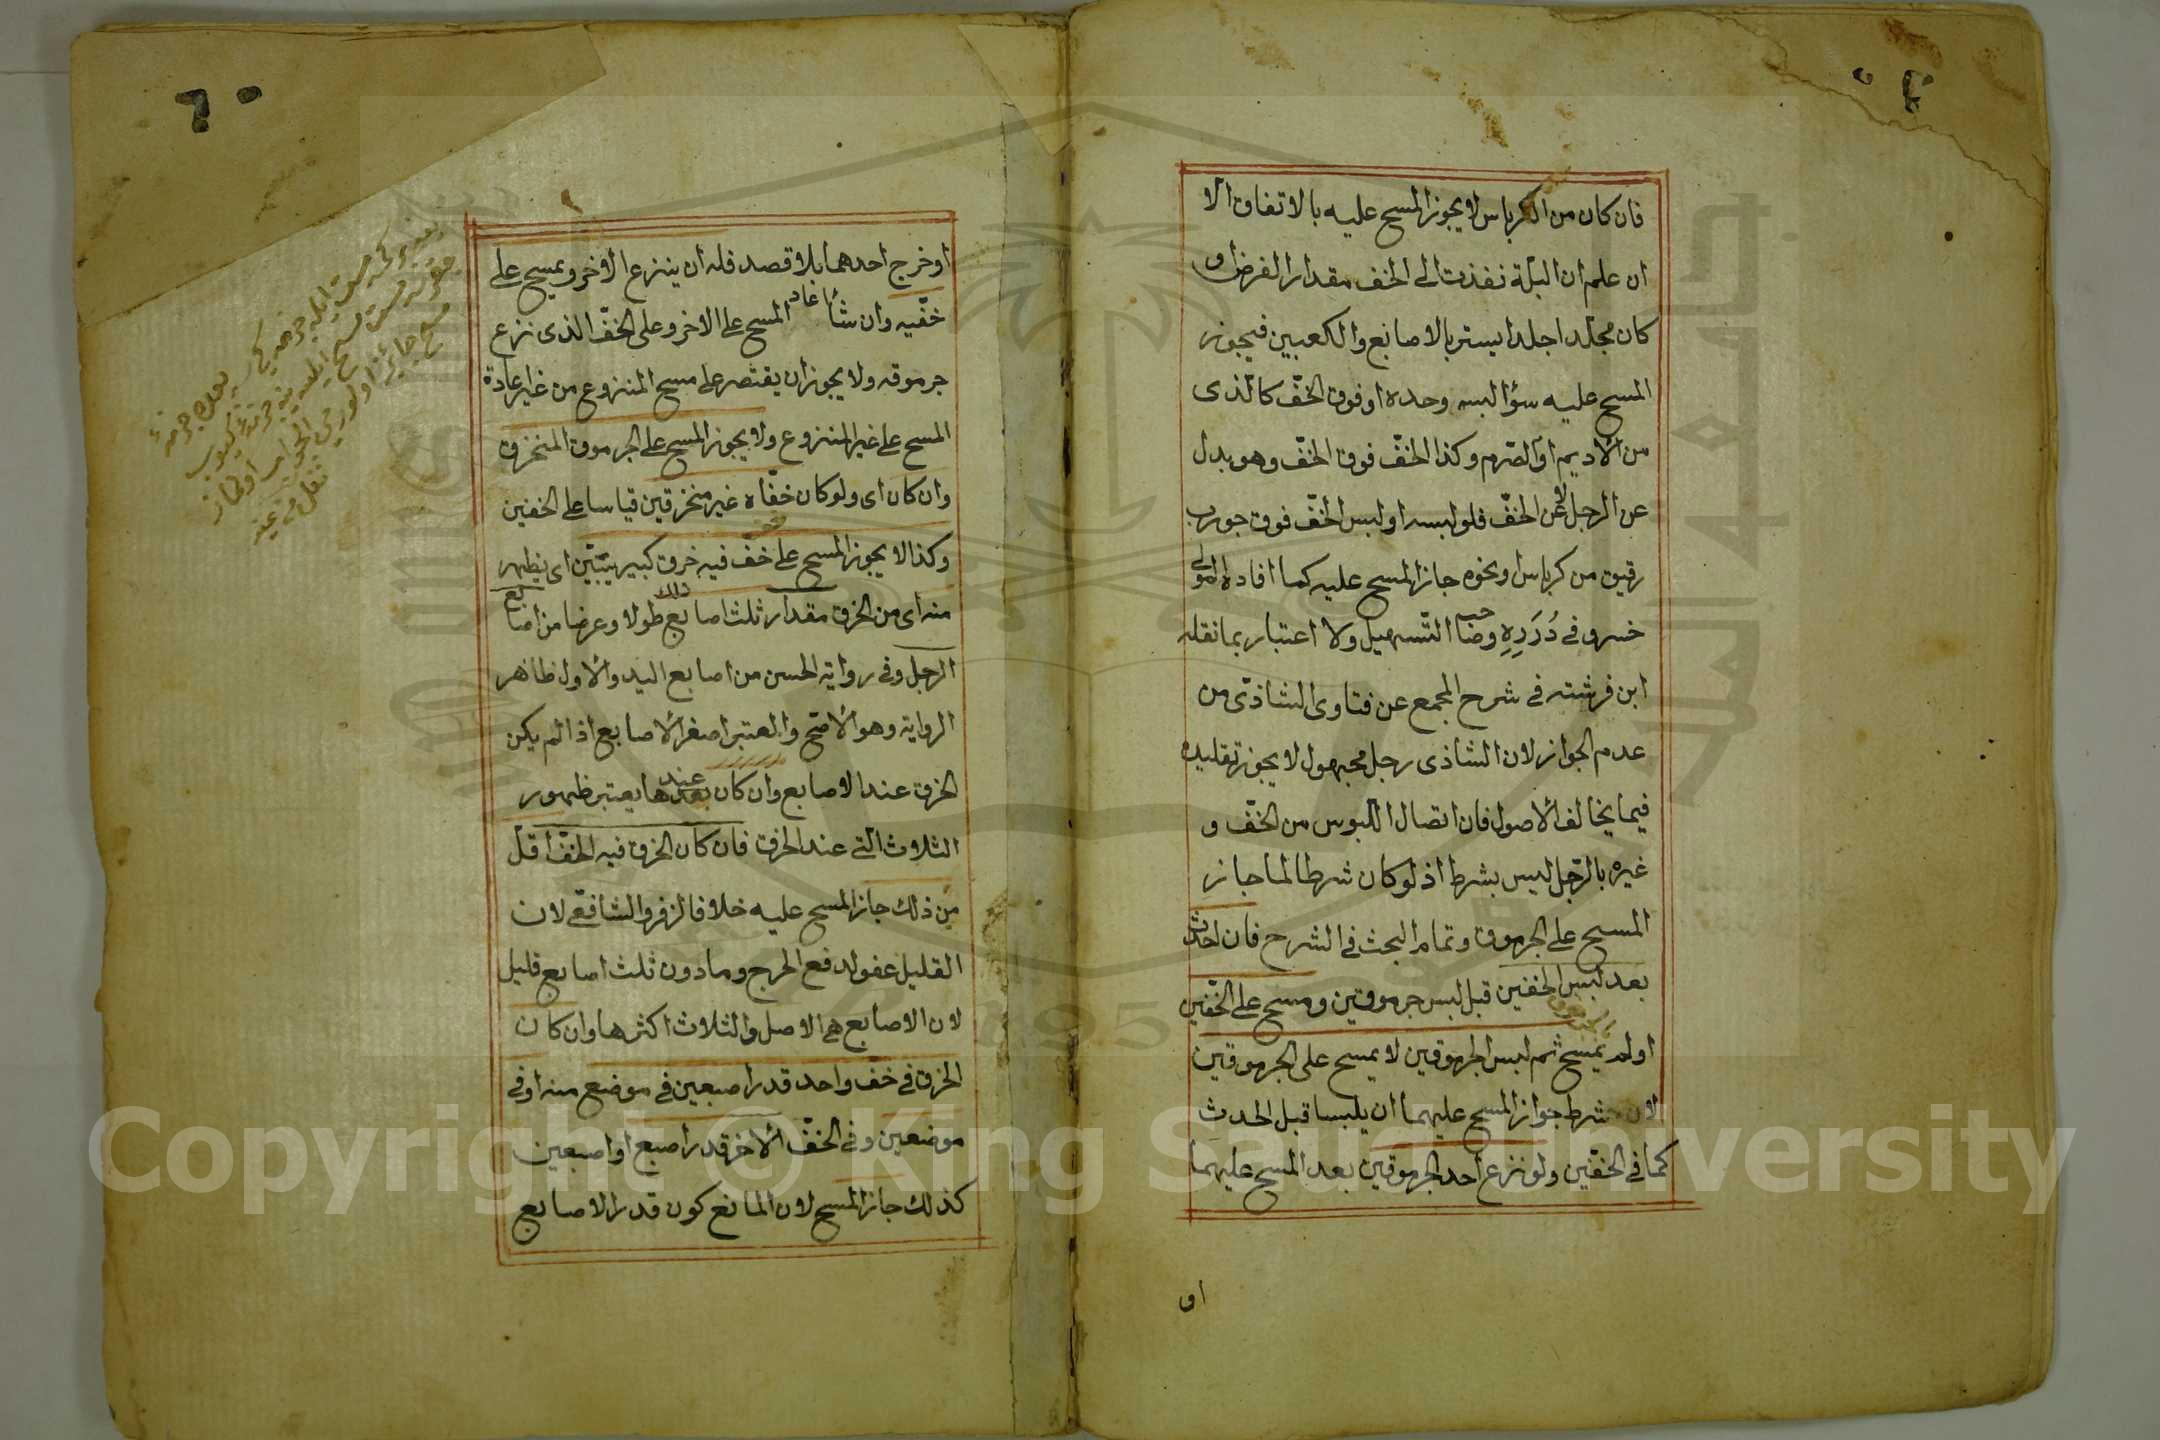 فان كان من الكرباس لا يجوز المسح عليه بالاتفاق الا
ان علم ان البلة نفذت الى الخف مقدار الفرض او
كان مجلدا جلدا يستر بالاصابع والكعبين فيجوز
المسح عليه سؤا لبسه وحده او فوق الخفّ كالذى
من الاديم او الصّرم وكذا الخفّ فوق الخفّ وهو بدل
عن الرجل لا عن الخفّ فلو لبسه او لبس الخفّ فوق جورب
رقيق من كرباس ونحوه جاز المسح عليه كما افاده المولى
خسرو فى دُرَرِهِ وصاحب التّسهيل ولا اعتبار بما نقله
ابن فرشته فى شرح المجمع عن فتاوى الشاذى من
عدم الجواز لان الشاذى رجل مجهول لا يجوز تقليده
فيما يخالف الاصول فان اتصال اللبوس من الخفّ و
غيره بالرّجل ليس بشرط اذ لو كان شرطا لما جاز
المسح على الجرموق وتمام البحث فى الشرح فان احدث
بعد لبس الخفين قبل لبس جرموقين ومسح على الخفّين
او لم يمسح ثم لبس الجرموقين لا يمسح على الجرموقين
لان شرط جواز المسح عليهما ان يلبسا قبل الحدث
كما فى الخفّين ولو نزع احد الجرموقين بعد المسح عليهما
او
٦٠
او خرج احدهما بلا قصد فله ان ينزع الاخر ويمسح على
خفّيه وان شأ اعاد المسح على الاخر وعلى الخفّ الذى نزع
جرموقه ولا يجوز ان يقتصر على مسح المنزوع من غير اعادة
المسح على غير المنزوع ولا يجوز المسح على الجرموق المنخرق
وان كان اى ولو كان خفّاه غير منخرقين قياسا على الخفين
وكذا لا يجوز المسح على خفّ فيه خرق كبير يتبيّن اى يظهر
منه اى من الخرق مقدار ثلث اصابع طولا وعرضا من اصابع
الرجل وفى رواية الحسن من اصابع اليد والاول ظاهر
الرواية وهو الاصّح والمعتبر اصغر الاصابع اذا لم يكن
الخرق عند الاصابع وان كان عندها يعتبر ظهور
الثلاث التى عند الخرق فان كان الخرق فيه الخفّ اقلّ
من ذلك جاز المسح عليه خلافا لزفر والشافعى لان
القليل عفو لدفع الحرج وما دون ثلث اصابع قليل
لان الاصابع هى الاصل والثلاث اكثرها وان كان
الخرق فى خفّ واحد قدر اصبعين فى موضع منه او فى
موضعين وفى الخفّ الاخر قدر اصبع او اصبعين
كذلك جاز المسح لان المانع كون قدر الاصابع
Copyright © King Saud University